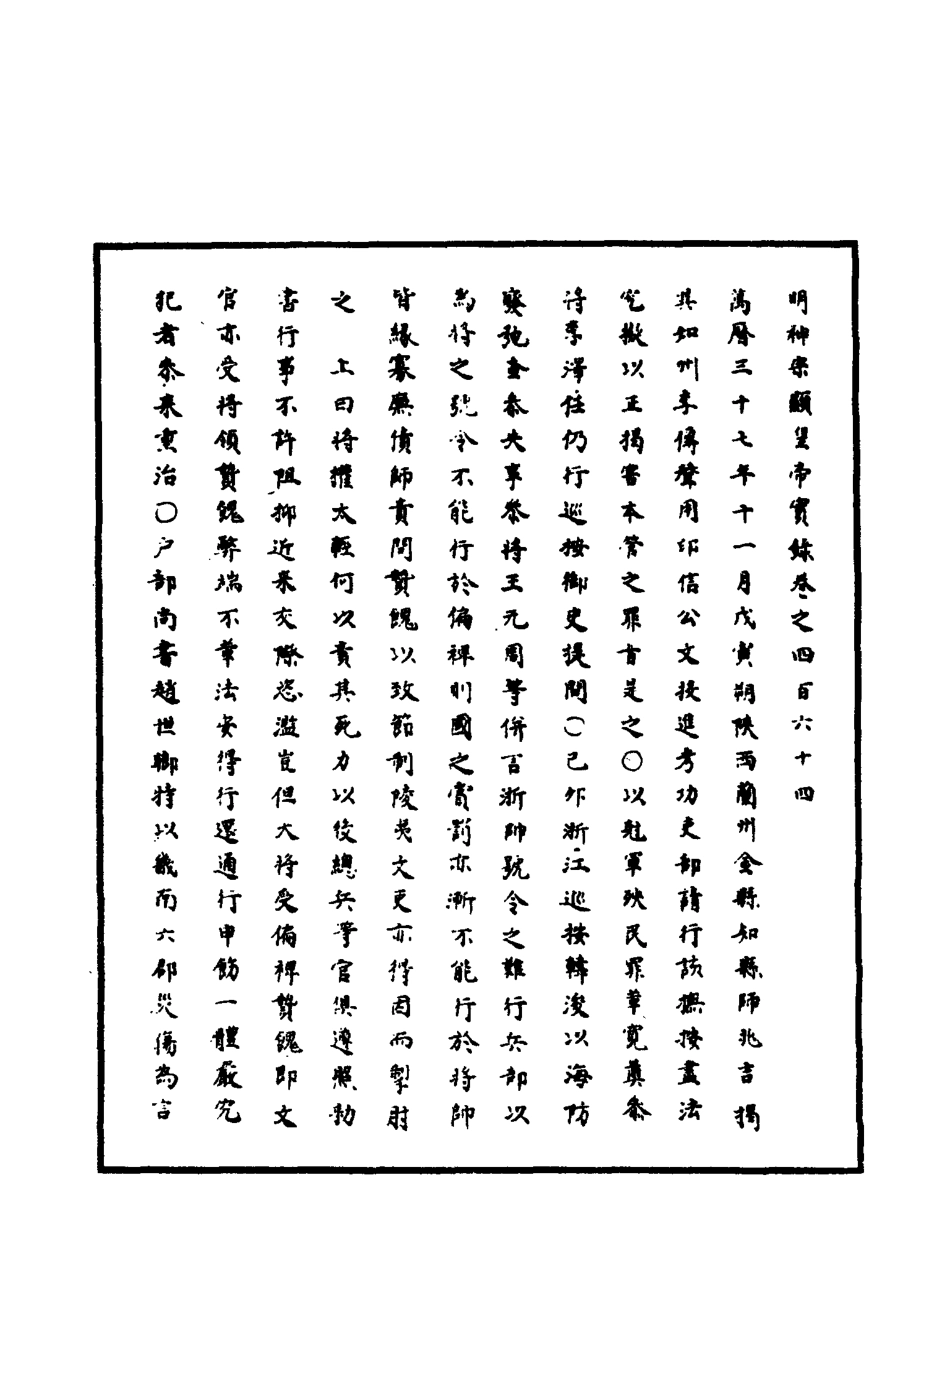 明神宗顯皇帝實錄卷之四百六十四
萬曆三十七年十一月戊寅朔陝西蘭州金縣知縣師兆吉揭
其知州李倬聲用印信公文投進考功吏部請行該撫按盡法
究擬以正揭害本管之罪旨是之○以剋軍殃民罪革寬奠叅
將李澤任仍行巡按御史提問○己夘浙江巡按韓浚以海防
廢弛查叅失事叅將王元周等併言浙帥號令之難行兵部以
為將之號令不能行於偏裨則國之賞罰亦漸不能行於將帥
皆緣寡廉債師責問贄餽以致節制陵夷文吏亦得因而掣肘
之　上曰將權太輕何以責其死力以後總兵等官俱遵照勑
書行事不許阻抑近來交際恣濫豈但大將受偏裨贄餽即文
官亦受將領贄餽弊端不革法安得行還通行申飭一體嚴究
犯者叅來重治○户部尚書趙世卿特以畿南六郡災傷為言